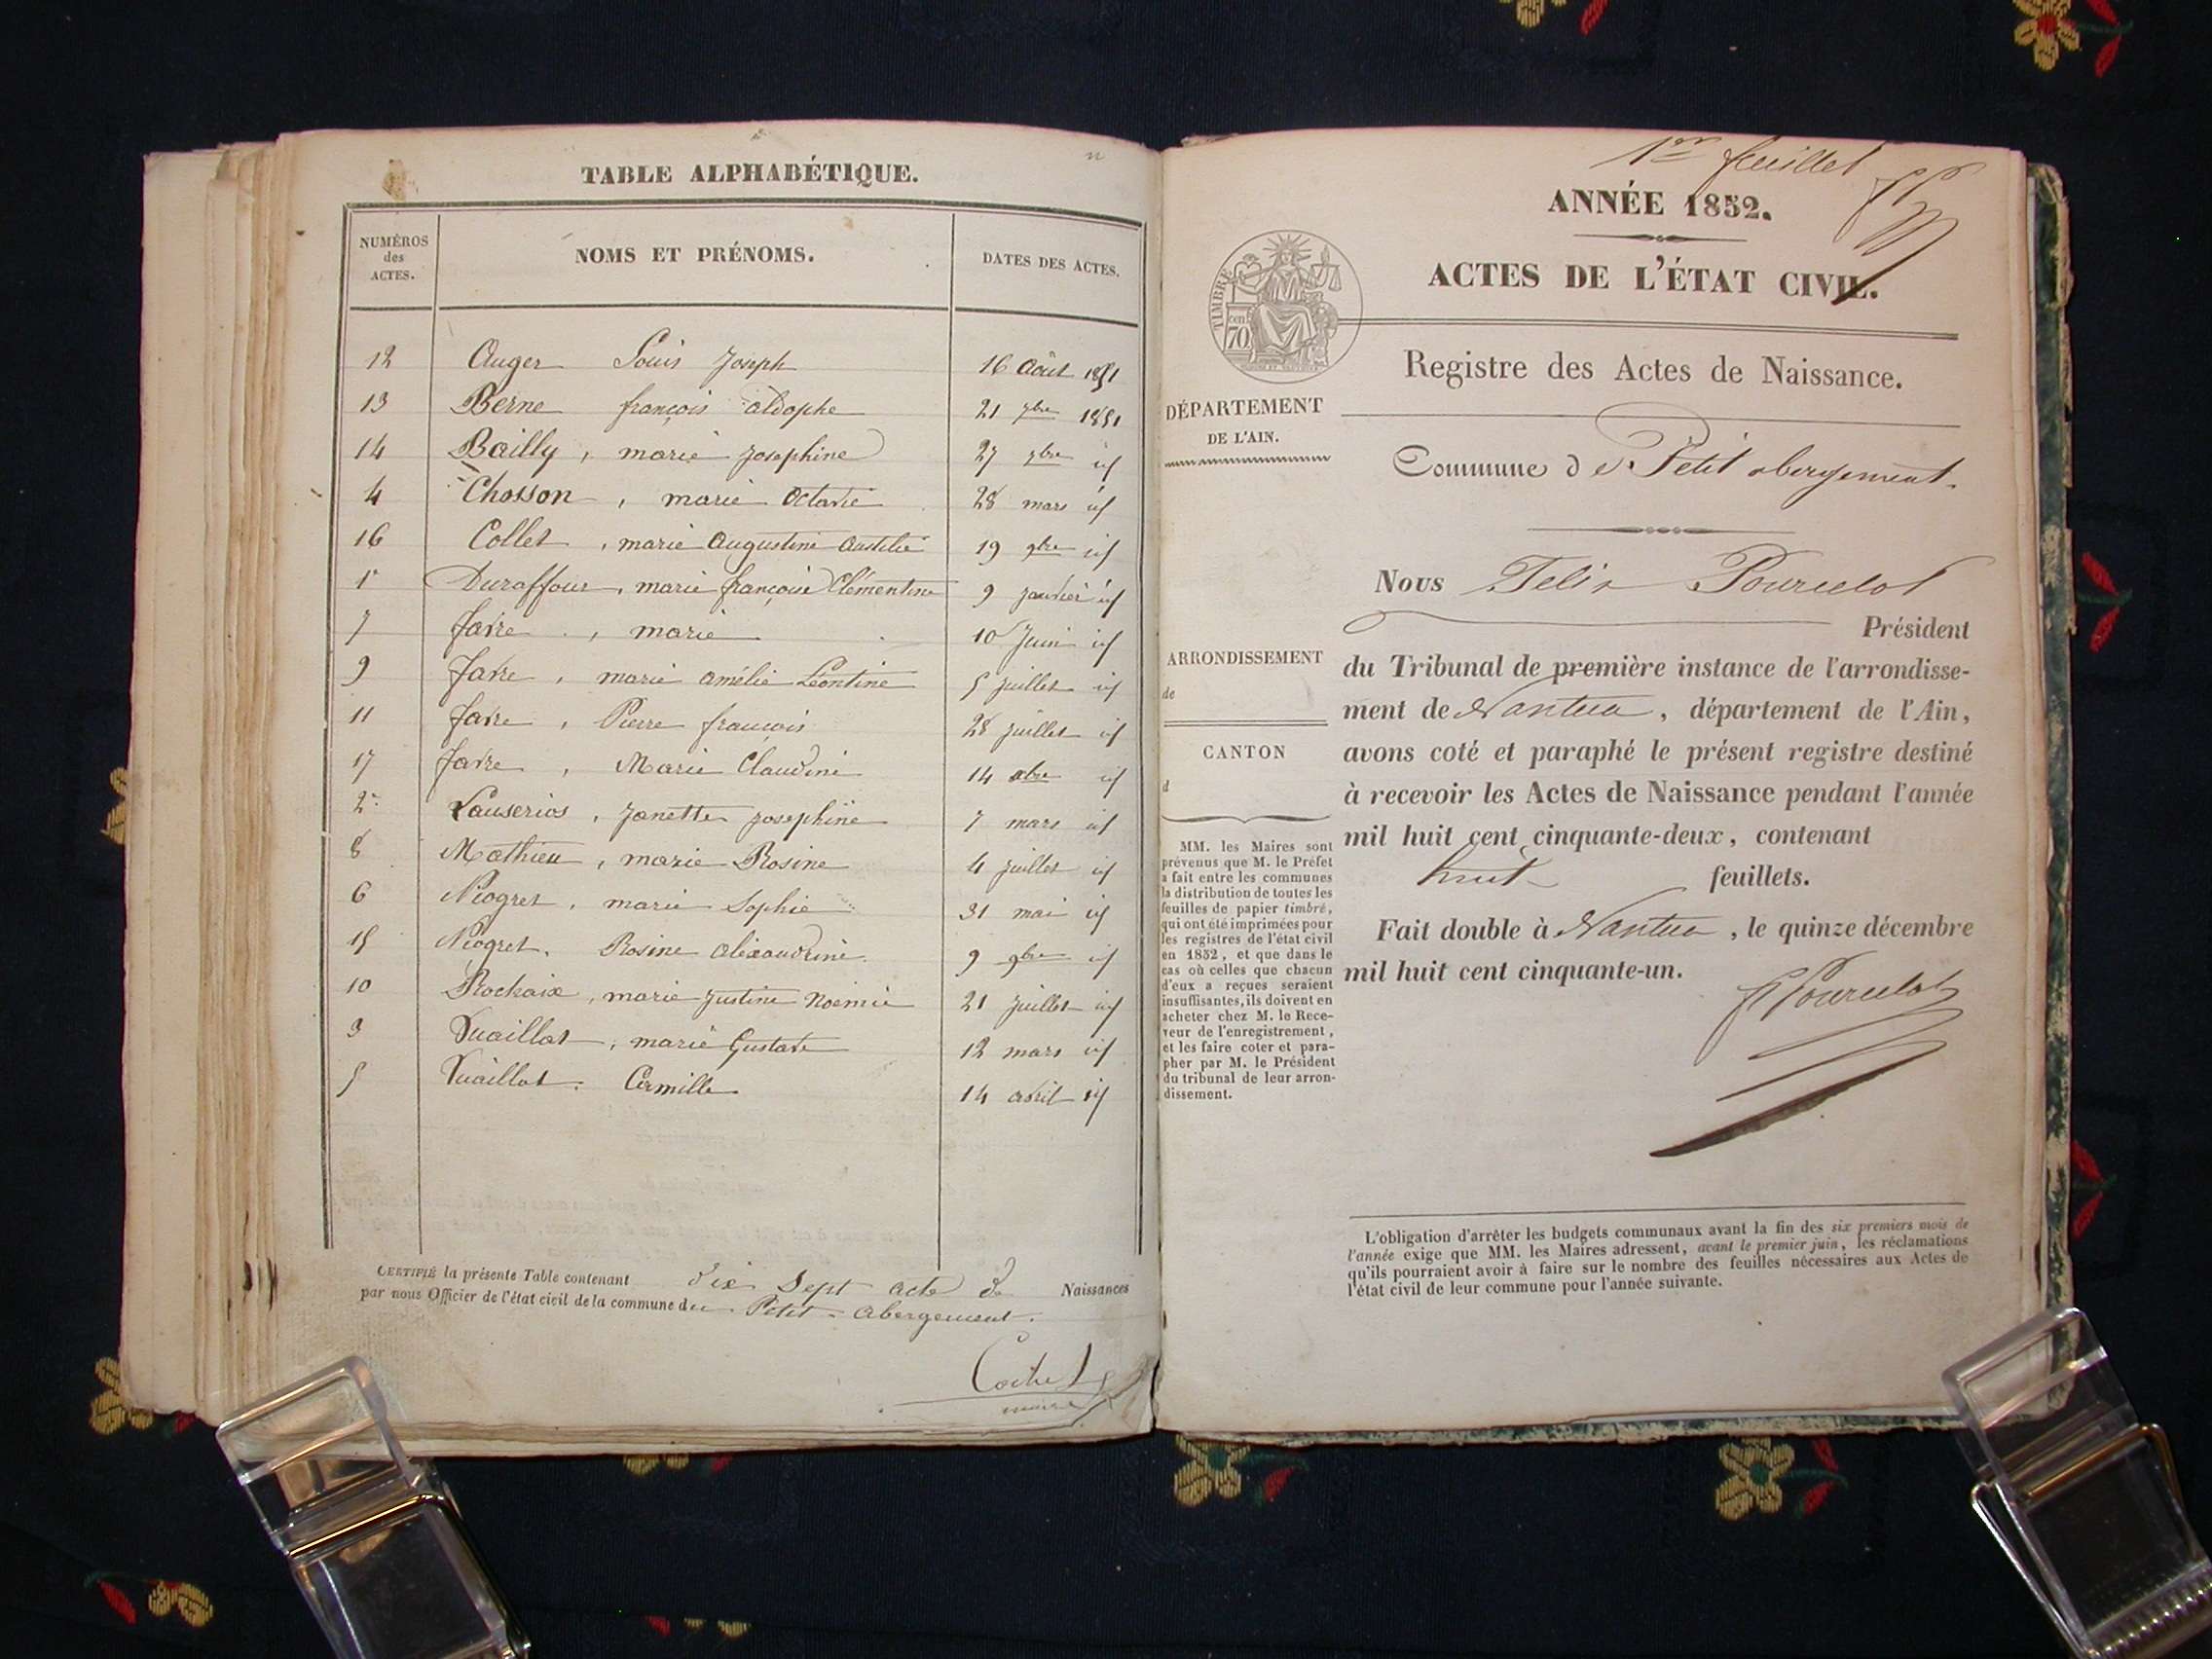 TABLE ALPHABÉTIQUE.
NUMÉROS
des
ACTES.
NOMS ET PRÉNOMS.
DATES DES ACTES.
12 Auger Louis Joseph 16 Août 1851
13 Berne françois aldophe 21 7bre 1851
14 Bailly, marie josephine 27 7bre id
4 Chosson, marie Octavie 28 mars id
16 Collet, marie Augustine 19 9bre id
1er Duraffour, marie françoise Clémentine 9 janvier id
7 favre, marie 10 Juin id
9 favre, marie amélie Léontine 5 juillet id
11 favre, Pierre françois 28 juillet id
17 favre, Marie Claudine 14 xbre id
2e Lauserios, janette josephine 7 mars id
8 Mathieu, marie Rosine 4 juillet id
6 Niogret, marie Sophie 31 mai id
15 Niogret. Rosine alixandrine. 9 9bre id
10 Rochaix, marie justine Noémie 21 juillet id
3 Vuaillat, marie Gustave 12 mars id
5 Vuaillat. Camille 14 avril id
CERTIFIÉ la présente Table contenant dix Sept acte de Naissances
par nous Officier de l'état civil de la commune du Petit-Abergement.
maire
1er feuillet
ANNÉE 1852.
ACTES DE L'ÉTAT CIVIL.
TIMBRE
cen 70
Registre des Actes de Naissance.
DÉPARTEMENT
DE L'AIN.
Commune de Petit abergement.
Nous Félix Pourcelot
Président
ARRONDISSEMENT
de
CANTON
d
du Tribunal de première instance de l'arrondisse-
ment de Nantua, département de l'Ain,
avons coté et paraphé le présent registre destiné
à recevoir les Actes de Naissance pendant l'année
mil huit cent cinquante-deux, contenant
huit feuillets.
Fait double à Nantua, le quinze décembre
mil huit cent cinquante-un.
F Pourcelot
MM. les Maires sont
prévenus que M. le Préfet
a fait entre les communes
la distribution de toutes les
feuilles de papier timbré,
qui ont été imprimées pour
les registres de l'état civil
en 1852, et que dans le
cas où celles que chacun
d'eux a reçues seraient
insuffisantes, ils doivent en
acheter chez M. le Rece-
veur de l'enregistrement,
et les faire coter et para-
pher par M. le Président
du tribunal de leur arron-
dissement.
L'obligation d'arrêter les budgets communaux avant la fin des six premiers mois de
l'année exige que MM. les Maires adressent, avant le premier juin, les réclamations
qu'ils pourraient avoir à faire sur le nombre des feuilles nécessaires aux Actes de
l'état civil de leur commune pour l'année suivante.